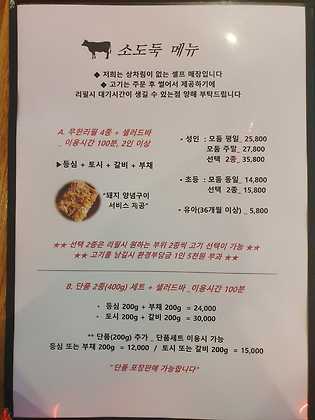 소도둑 메뉴
◆ 저희는 상차림이 없는 셀프 매장입니다
◆ 고기는 주문 후 썰어서 제공하기에
리필시 대기시간이 생길 수 있는점 양해 부탁드립니다
A. 무한리필 4종 + 샐러드바
_ 이용시간 100분, 2인 이상
▶등심 + 토시 + 갈비 + 부채
"돼지 양념구이
서비스 제공"
- 성인 : 모둠 평일_ 25,800
모둠 주말_ 27,800
선택 2종_ 35,800
- 초등 : 모둠 동일_ 14,800
선택 2종_ 15,800
- 유아(36개월 이상) _ 5,800
★★ 선택 2종은 리필시 원하는 부위 2종씩 고기 선택이 가능 ★★
★★ 고기를 남길시 환경부담금 1인 5천원 부과 ★★
B. 단품 2종(400g) 세트 + 샐러드바 _이용시간 100분
- 등심 200g + 부채 200g = 24,000
- 토시 200g + 갈비 200g = 30,000
** 단품(200g) 추가 _ 단품세트 이용시 가능
등심 or 부채 200g = 12,000 / 토시 or 갈비 200g = 15,000
"단품 포장판매 가능합니다"